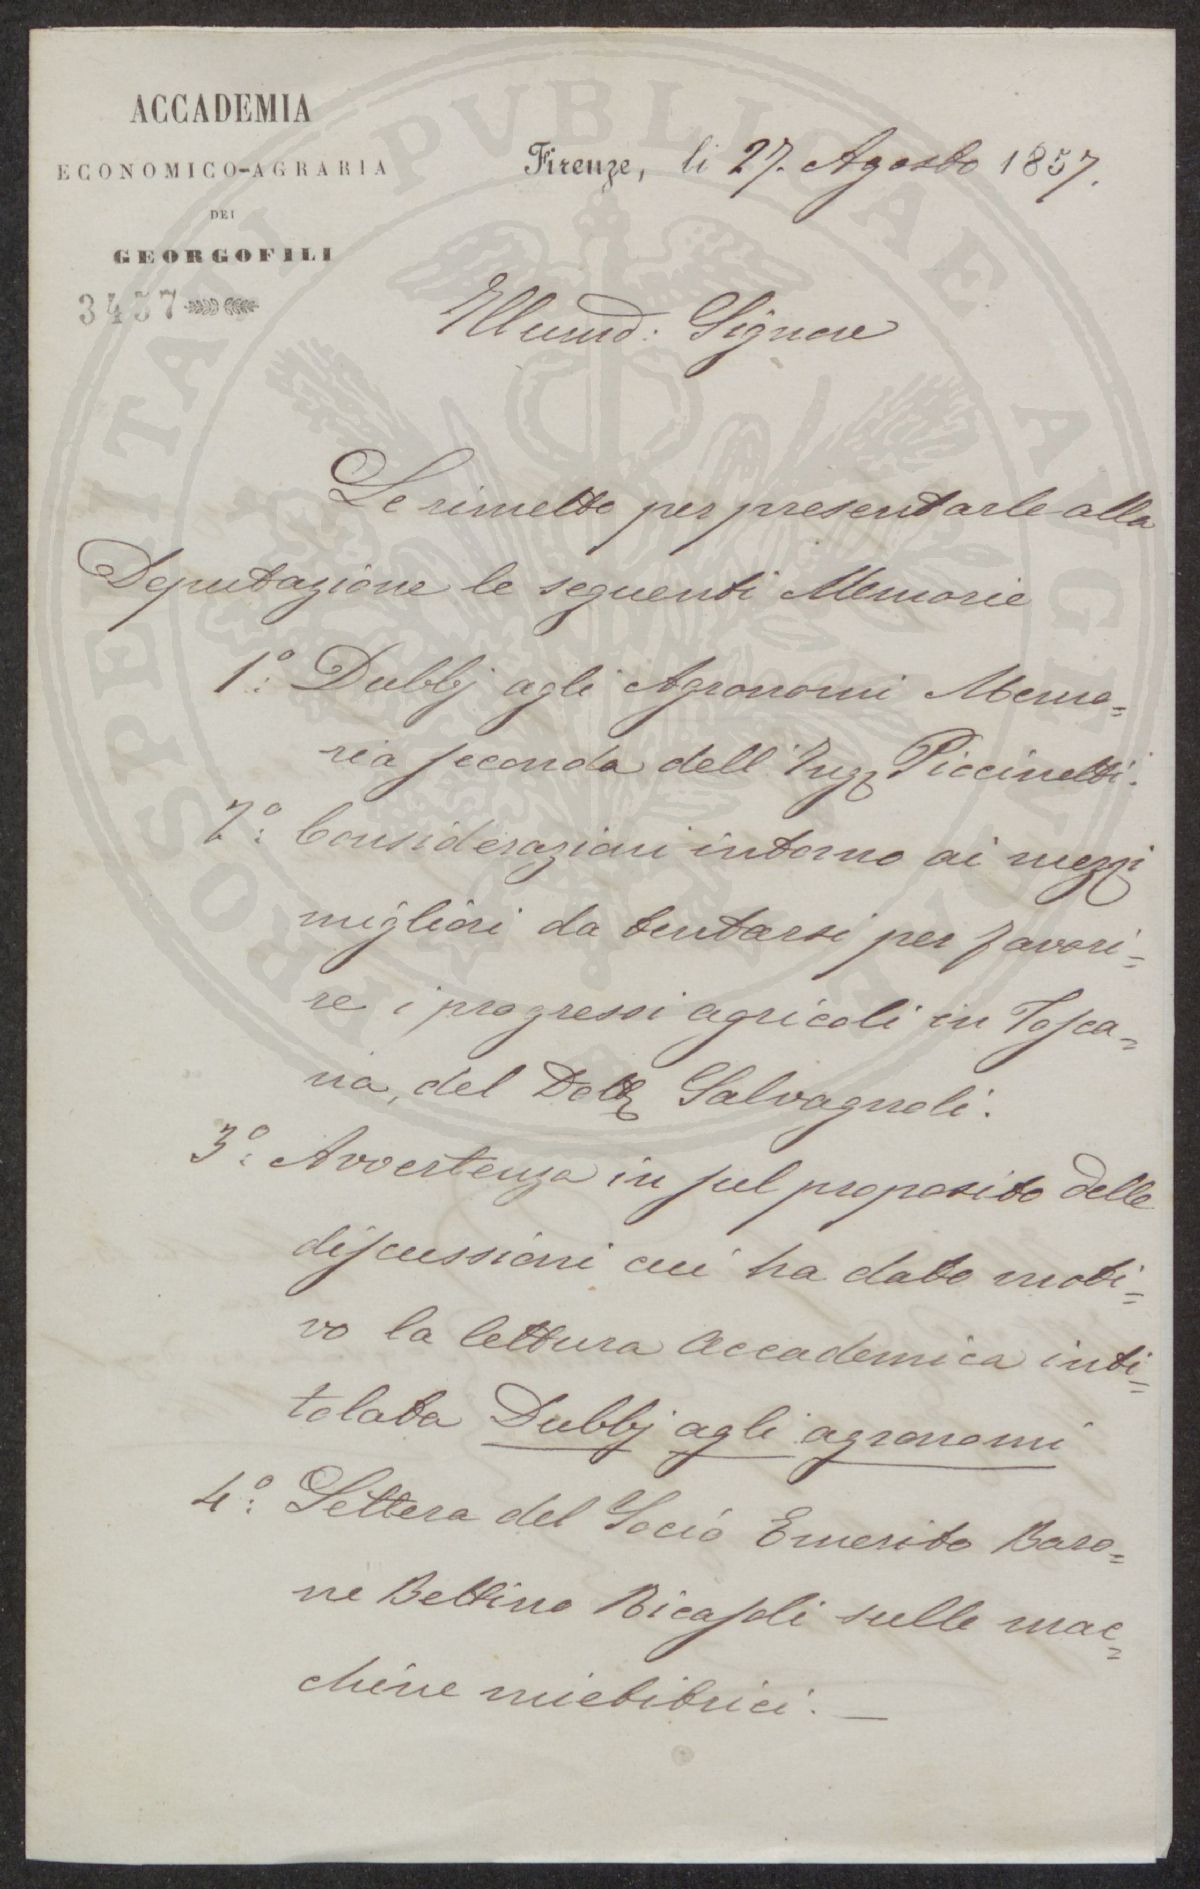 ACCADEMIA
ECONOMICO-AGRARIA
DEI
GEORGOFILI
3457
Firenze, li 27. Agosto 1857.
Illumo: Signore
Le rimetto per presentarle alla
Deputazione le seguenti Memorie
1°: Dubbj agli Agronomi Memo=
ria seconda dell'Ingr Piccinetti.
2°: Considerazioni intorno ai mezzi
migliori da tentarsi per favori=
re i progressi agricoli in Tosca=
na, del Dottr Salvagnoli.
3°: Avvertenza in sul proposito delle
discussioni cui ha dato moti=
vo la lettura accademica inti=
tolata Dubbj agli agronomi
4°: Lettera del Socio Emerito Baro=
ne Bettino Ricasoli sulle mac=
chine mietitrici. —
PROSPERITATI PVBLICAE AVGENDAE